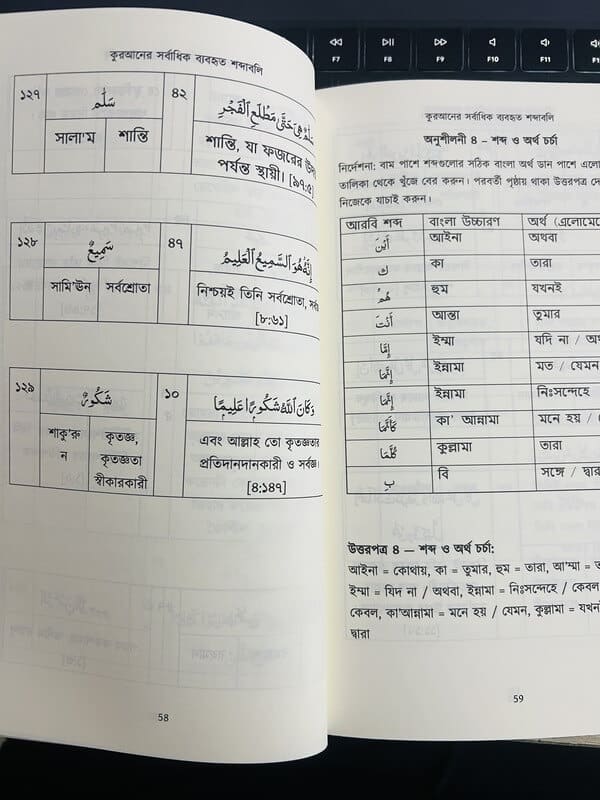 F7
F8
F9
F10
F11
কুরআনের সর্বাধিক ব্যবহৃত শব্দাবলি
১২৭
سَلَٰم
৪২
سَلَٰمٌ هِىَ حَتَّىٰ مَطْلَعِ ٱلْفَجْرِ
সালা'ম
শান্তি
শান্তি, যা ফজরের
পর্যন্ত স্থায়ী। [৯৭:৫]
১২৮
سَمِيعٌ
৪৭
إِنَّهُ هُوَ ٱلسَّمِيعُ ٱلْعَلِيمُ
সামি'ঊন
সর্বশ্রোতা
নিশ্চয়ই তিনি সর্বশ্রোতা,
[৮:৬১]
১২৯
شَكُورٌ
১০
وَكَانَ ٱللَّهُ شَاكِرًا عَلِيمًا
শাকু'রু
ন
কৃতজ্ঞ,
কৃতজ্ঞতা
স্বীকারকারী
এবং আল্লাহ তো কৃতজ্ঞতার
প্রতিদানদানকারী ও সর্বজ্ঞ।
[৪:১৪৭]
58
কুরআনের সর্বাধিক ব্যবহৃত শব্দাবলি
অনুশীলনী ৪ – শব্দ ও অর্থ চর্চা
নির্দেশনা: বাম পাশে শব্দগুলোর সঠিক বাংলা অর্থ ডান পাশে
তালিকা থেকে খুঁজে বের করুন। পরবর্তী পৃষ্ঠায় থাকা উত্তরপত্র
নিজেকে যাচাই করুন।
আরবি শব্দ বাংলা উচ্চারণ অর্থ
أَيْنَ আইনা অথবা
كَ কা তারা
هُمْ হুম যখনই
أَنْتَ আন্তা তুমার
إِمَّا ইম্মা যদি না /
إِنَّمَا ইন্নামা মত / যেমন
إِنَّمَا ইন্নামা নিঃসন্দেহে
كَأَنَّمَا কা' আন্নামা মনে হয় /
كُلَّمَا কুল্লামা তারা
بِ বি সঙ্গে / দ্বারা
উত্তরপত্র ৪ — শব্দ ও অর্থ চর্চা:
আইনা = কোথায়, কা = তুমার, হুম = তারা, আ'ম্মা =
ইম্মা = যিদ না / অথবা, ইন্নামা = নিঃসন্দেহে / কেবল,
কেবল, কা'আন্নামা = মনে হয় / যেমন, কুল্লামা =
দ্বারা
59